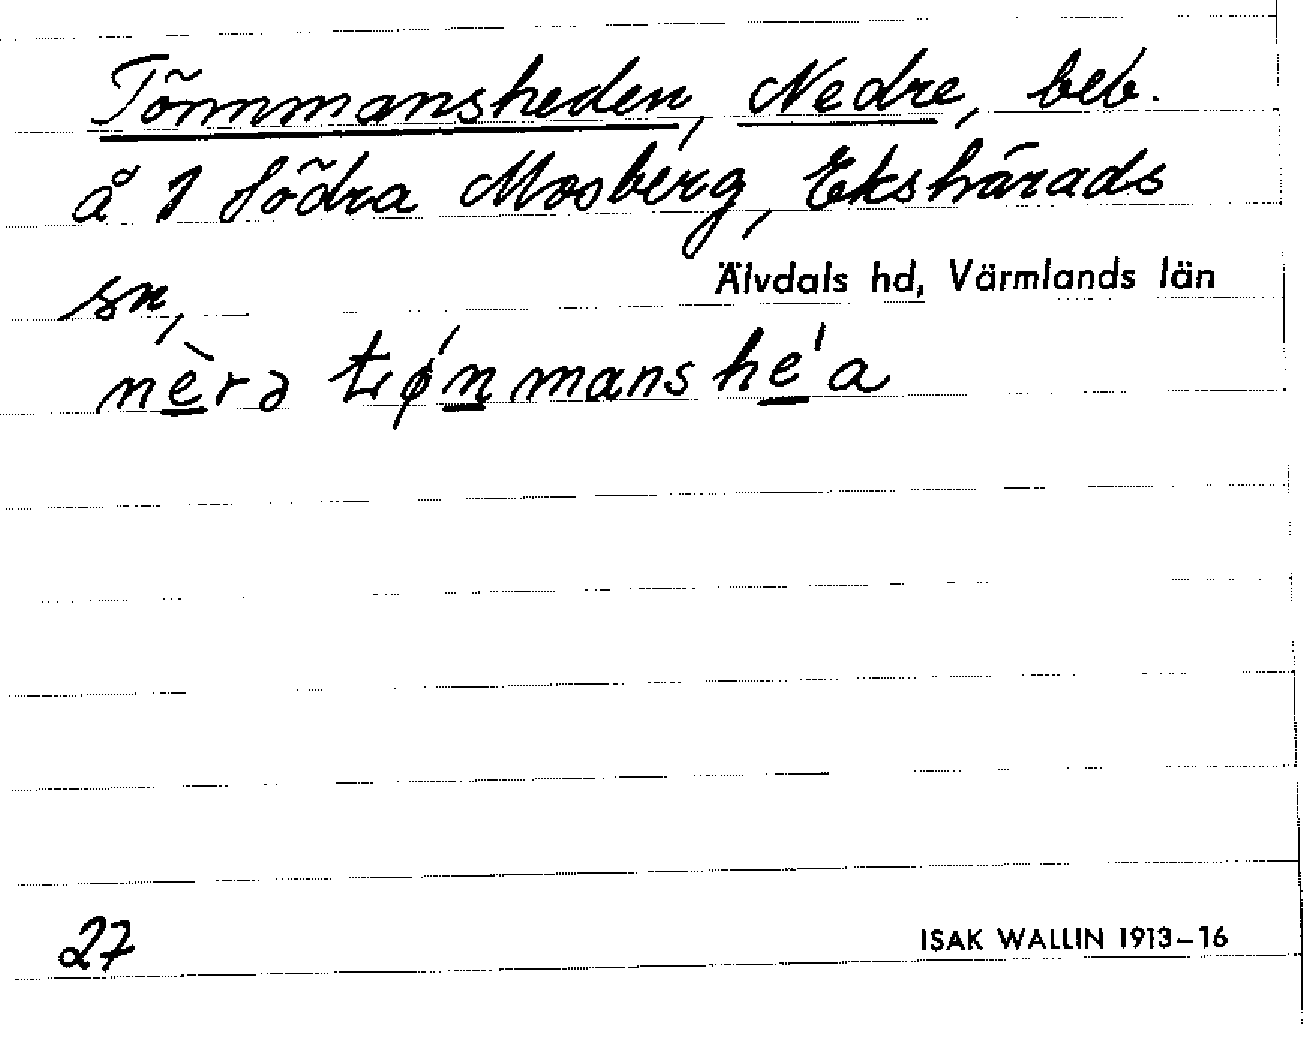 Tönnmansheden, Nedre, beb.
å 1 Södra Mosberg, Ekshärads
sn, Älvdals hd, Värmlands län
nèrə tǿnmanshe'a
27 ISAK WALLIN 1913–16